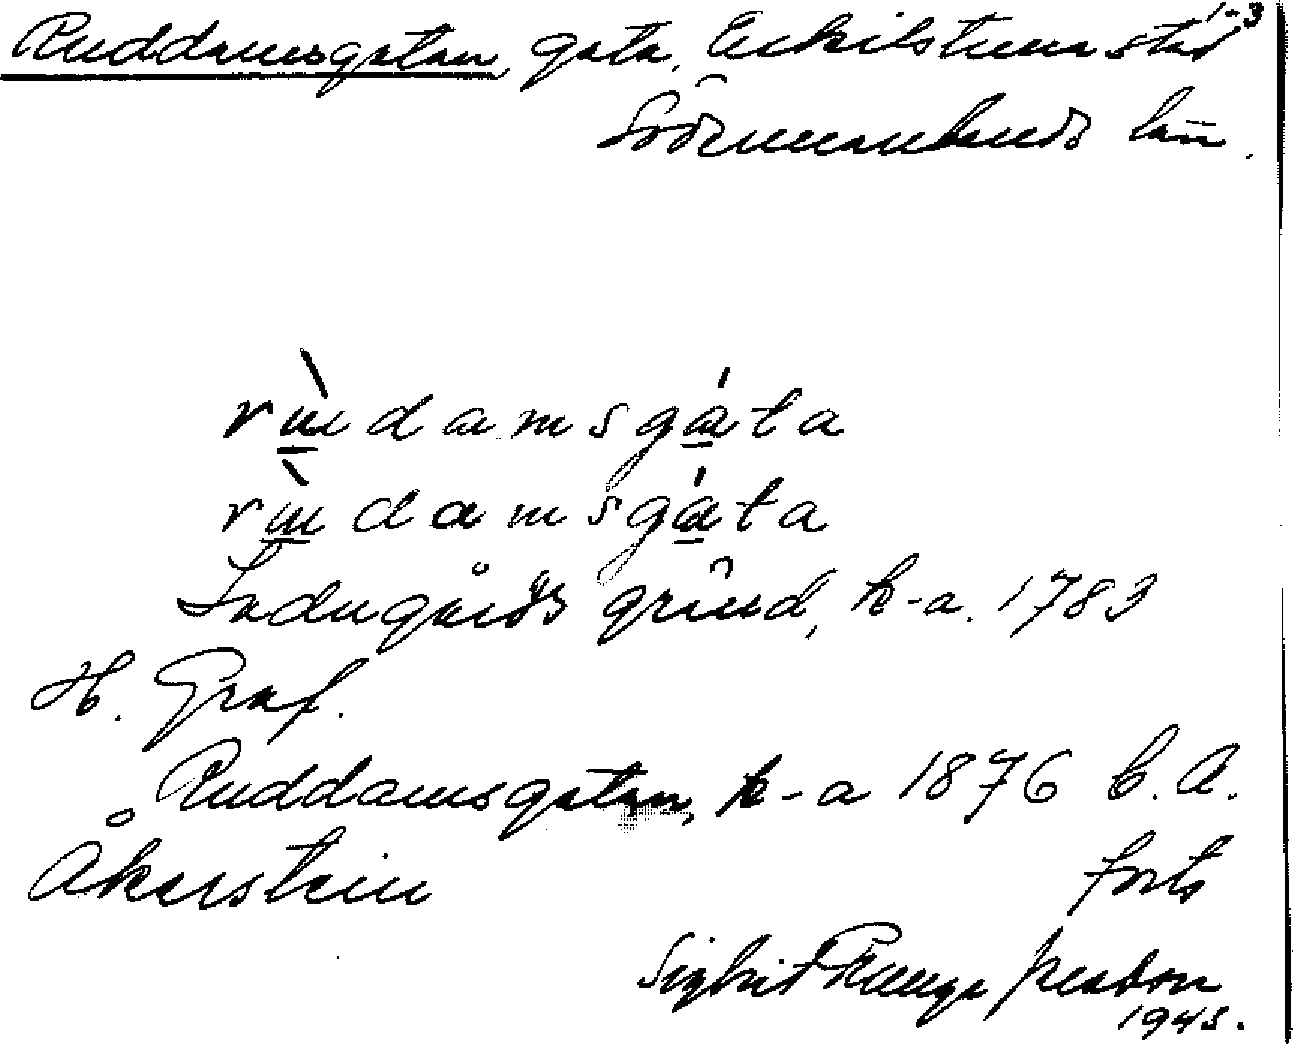 Ruddamsgatan, gata, Eskilstuna stad 1-3
Södermanlands län.
rùdamsgáta
rùdamsgáta
Ladugårds gränd, k-a. 1783
H. Graf.
Ruddamsgatan, k-a 1876 C. A.
Åkerstein
forts
Sigbrit Plænge Persson
1945.